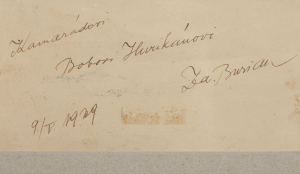 Kamarádovi
Boboši Hurikánovi
Zd. Burian
9/I. 1929